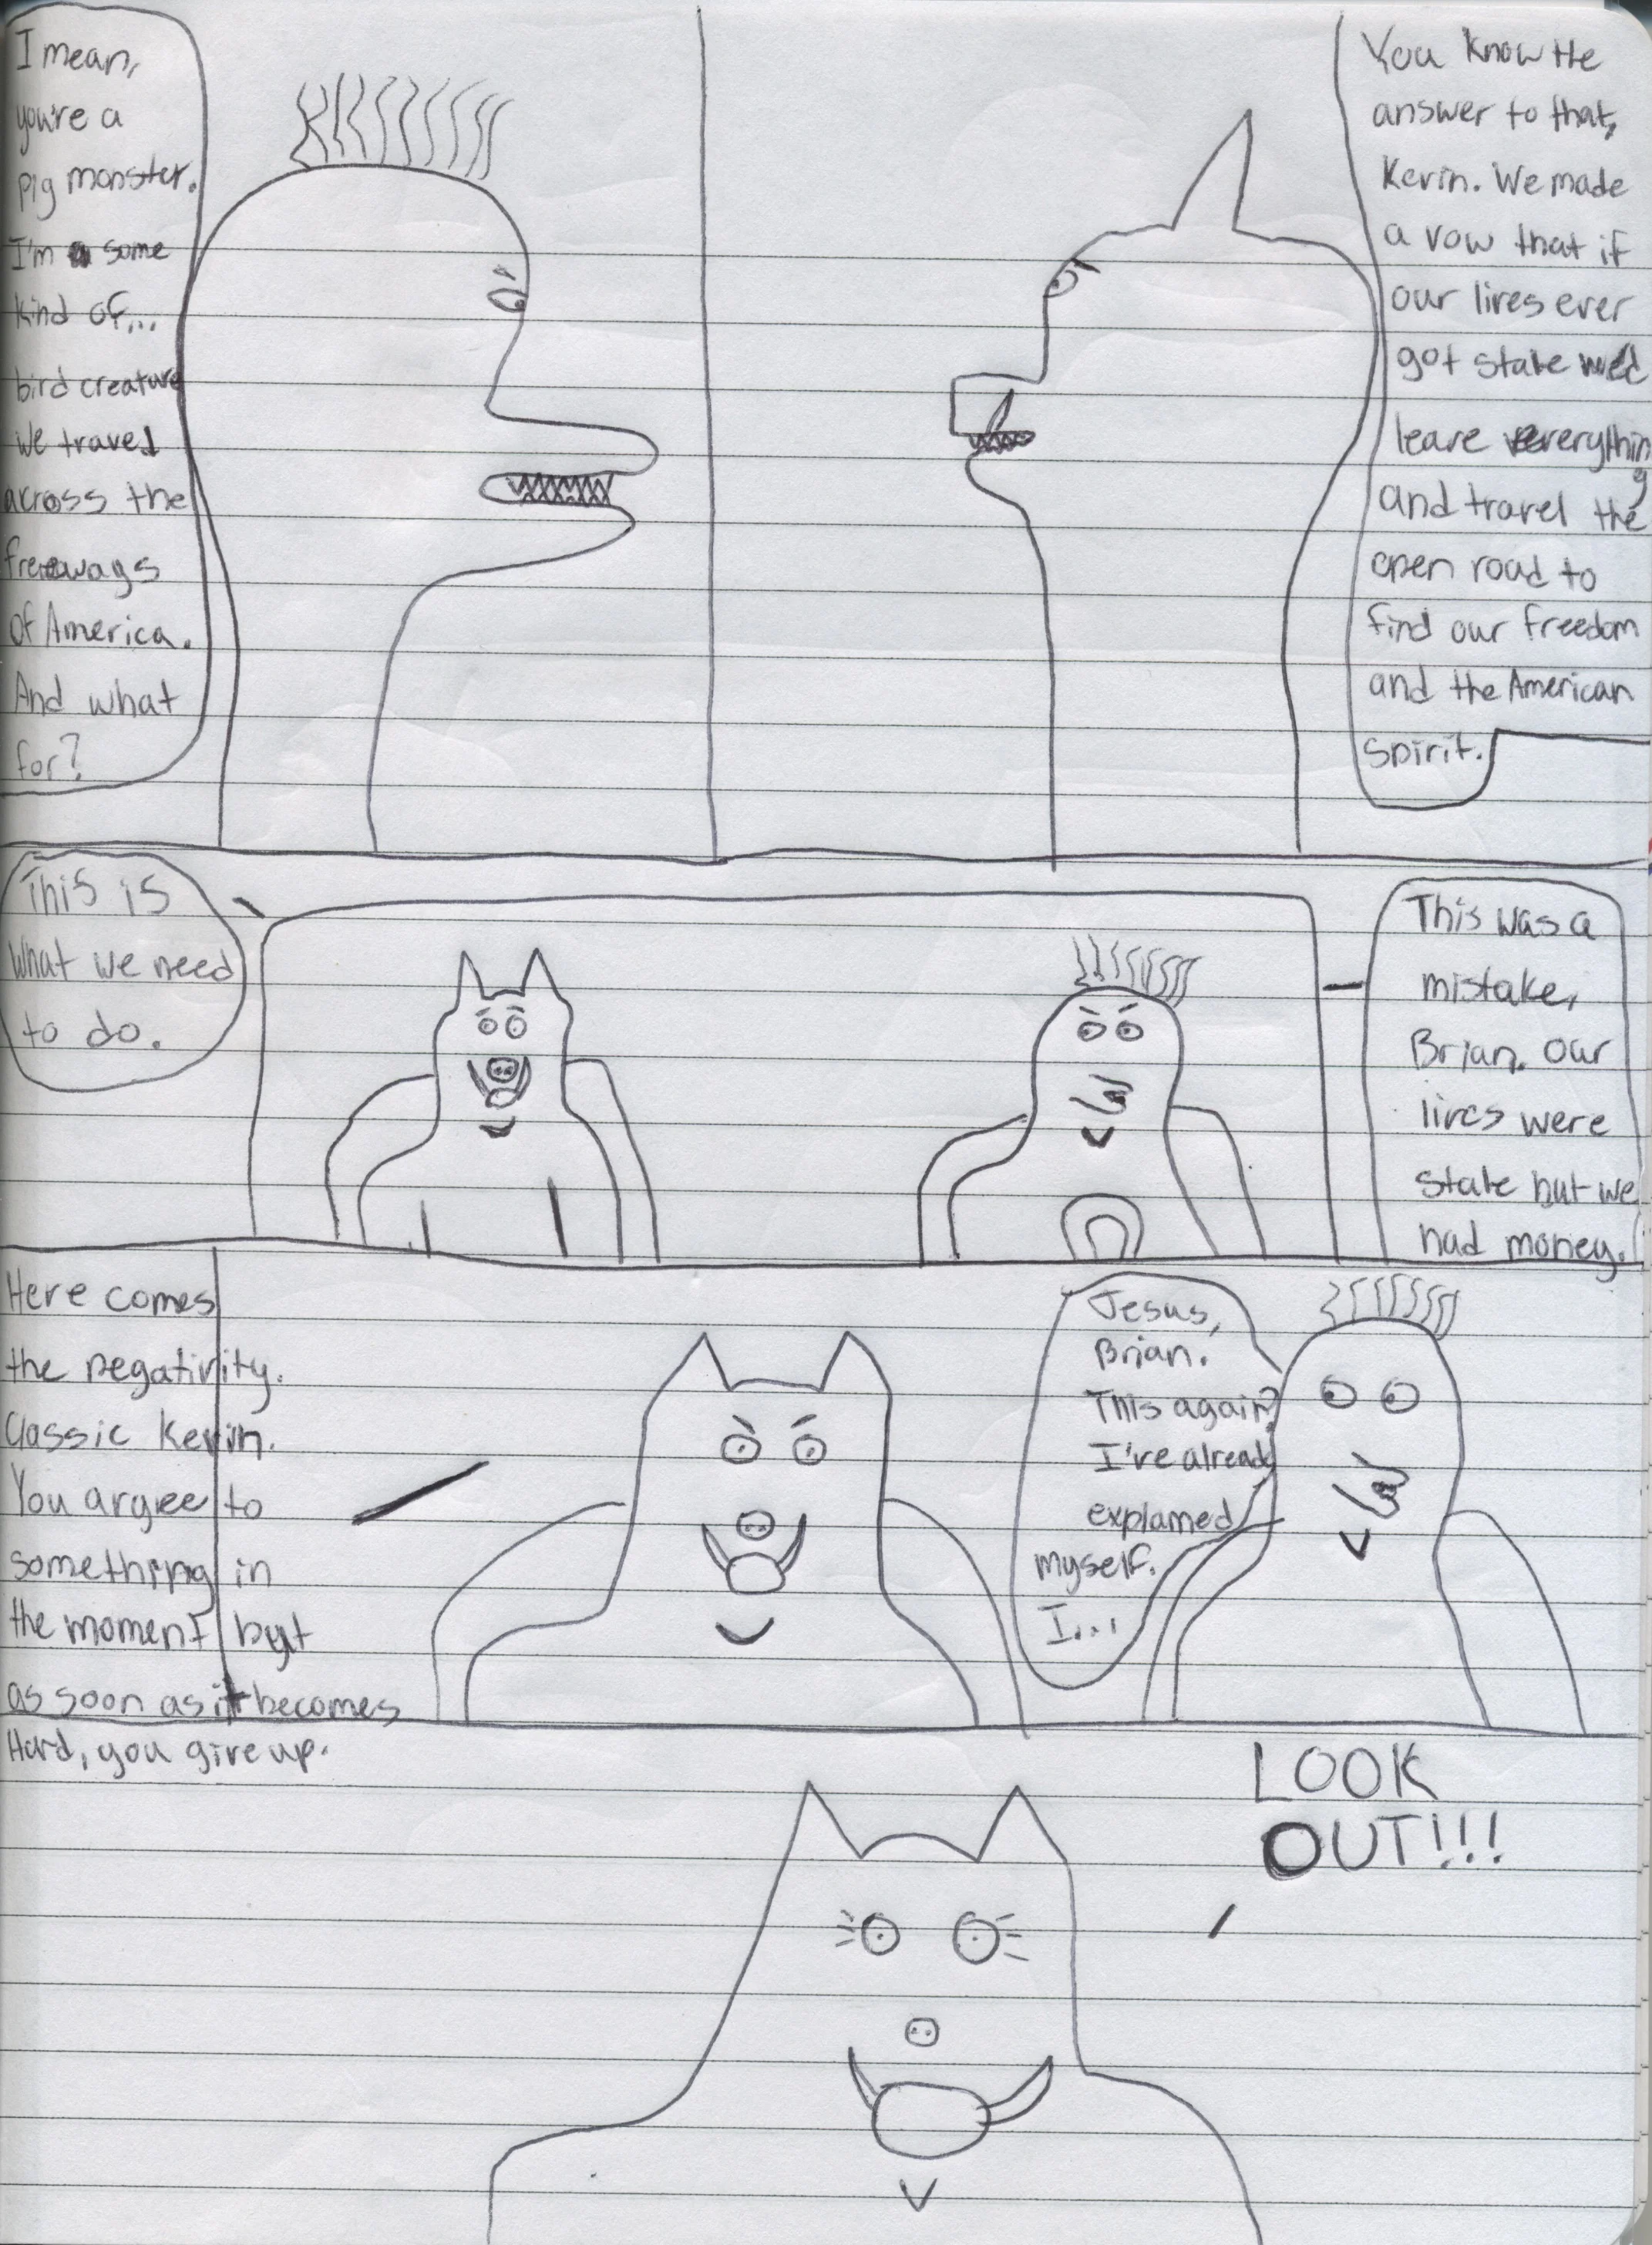 I mean,
you're a
pig monster.
I'm some
kind of...
bird creature
We travel
across the
freeways
of America.
And what
for?
You know the
answer to that,
Kevin. We made
a vow that if
our lives ever
got stale we'd
leave everything
and travel the
open road to
find our freedom
and the American
spirit.
This is
what we need
to do.
This was a
mistake,
Brian. Our
lives were
stale but we
had money.
Here comes
the negativity.
Classic Kevin.
You argree to
something in
the moment but
as soon as it becomes
Hard, you give up.
Jesus,
Brian.
This again?
I've already
explained
myself.
I...
LOOK
OUT!!!